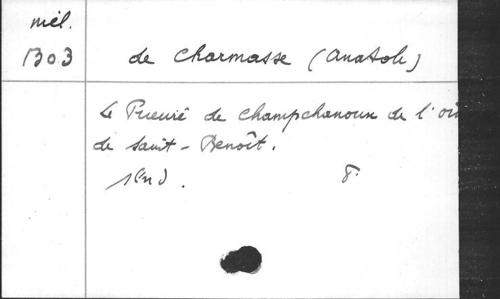 mél.
1303
de Charmasse (Anatole)
Le Prieuré de Champchanoux de l'or
de Saint-Benoît.
8.